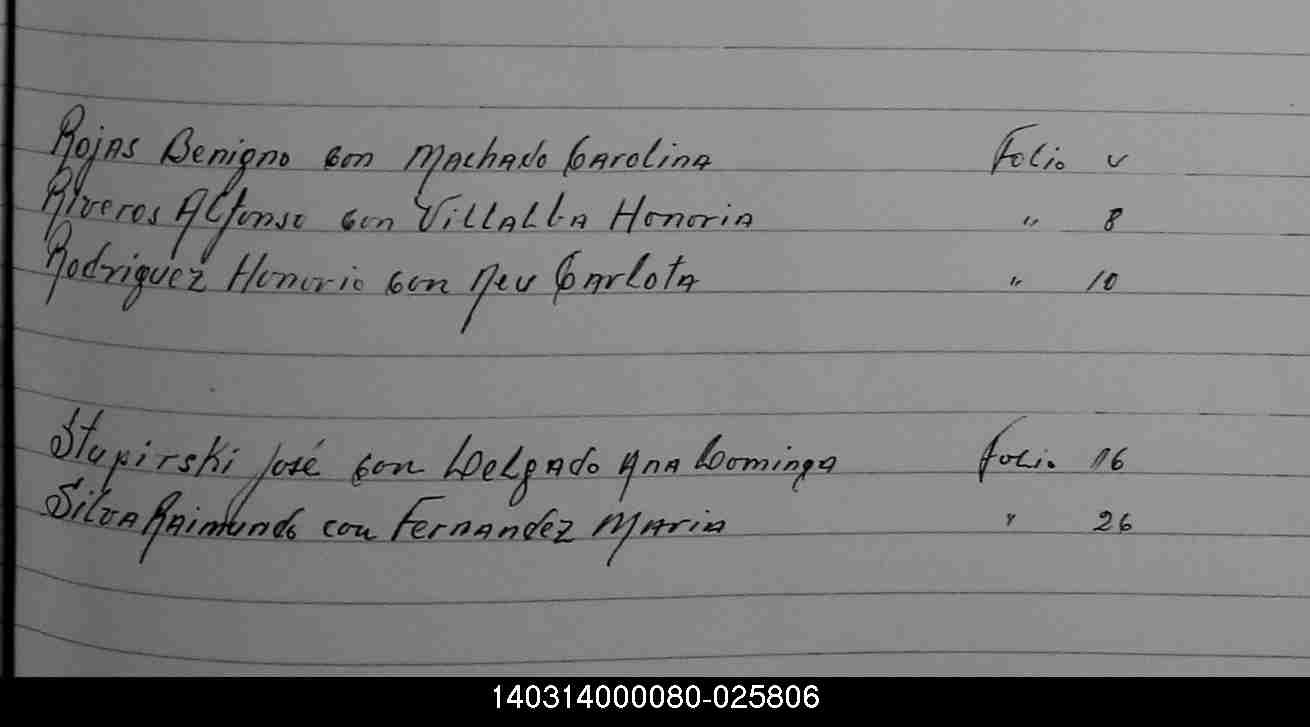 Rojas Benigno con Machado Carolina Folio v
Riveros Alfonso con Villalba Honoria " 8
Rodriguez Honorio con Neu Carlota " 10
Stupirski José con Delgado Ana Dominga folio 16
Silva Raimundo con Fernandez Maria " 26
140314000080-025806